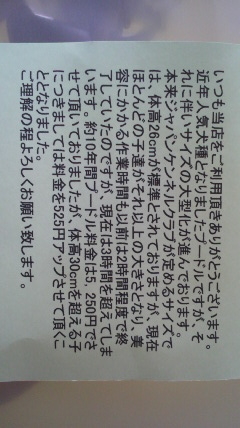 いつも当店をご利用頂きありがとうございます。
近年人気犬種となりましたプードルですが、そ
れに伴いサイズの大型化が進んでおります。
本来ジャパンケンネルクラブが定めるサイズで
は、体高26cmが標準とされておりますが、現在
ほとんどの子達がそれ以上の大きさとなり、美
容にかかる作業時間も以前は2時間程度で終
了していたのですが、現在は3時間を超えてしま
います。約10年間プードル料金は5,250円でさ
せて頂いておりましたが、体高30cmを超える子
につきましては料金を525円アップさせて頂くこ
ととなりました。
ご理解の程よろしくお願い致します。